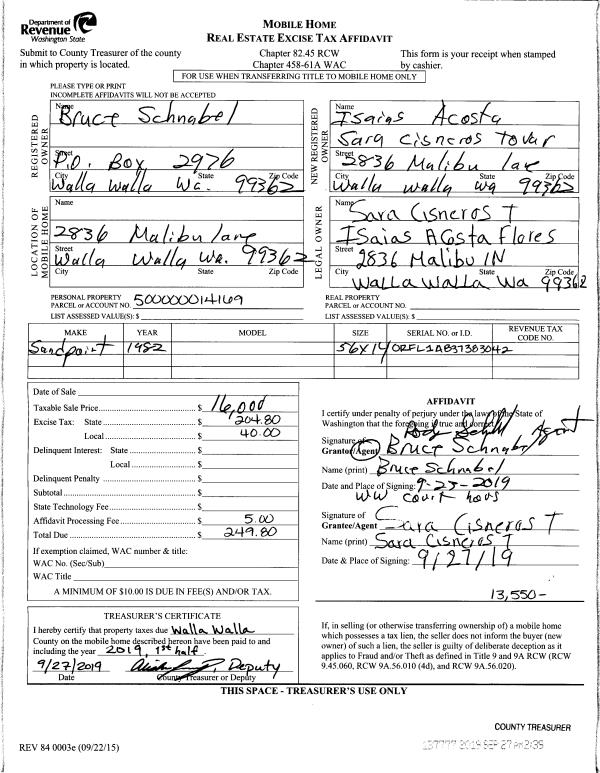 Department of
Revenue
Washington State
MOBILE HOME
REAL ESTATE EXCISE TAX AFFIDAVIT
Submit to County Treasurer of the county
in which property is located.
Chapter 82.45 RCW
Chapter 458-61A WAC
This form is your receipt when stamped
by cashier.
FOR USE WHEN TRANSFERRING TITLE TO MOBILE HOME ONLY
PLEASE TYPE OR PRINT
INCOMPLETE AFFIDAVITS WILL NOT BE ACCEPTED
REGISTERED OWNER
Name
Bruce Schnabel
Street
P.O. Box 2976
City State Zip Code
Walla Walla Wa. 99362
NEW REGISTERED OWNER
Name
Isaias Acosta
Sara Cisneros Tovar
Street
2836 Malibu lane
City State Zip Code
Walla walla wa 99362
LOCATION OF MOBILE HOME
Name
2836 Malibu lane
Street
Walla Walla Wa. 99362
City State Zip Code
LEGAL OWNER
Name
Sara Cisneros T
Isaias Acosta Flores
Street
2836 Malibu lN
City State Zip Code
Walla Walla Wa 99362
PERSONAL PROPERTY
PARCEL or ACCOUNT NO. 500000014169
LIST ASSESSED VALUE(S): $
REAL PROPERTY
PARCEL or ACCOUNT NO.
LIST ASSESSED VALUE(S): $
MAKE YEAR MODEL SIZE SERIAL NO. or I.D. REVENUE TAX CODE NO.
Sandpoint 1982 56X14 ORFL1AB37383042
Date of Sale
Taxable Sale Price $ 16,000
Excise Tax: State $ 204.80
Local $ 40.00
Delinquent Interest: State $
Local $
Delinquent Penalty $
Subtotal $
State Technology Fee $
Affidavit Processing Fee $ 5.00
Total Due $ 249.80
If exemption claimed, WAC number & title:
WAC No. (Sec/Sub)
WAC Title
A MINIMUM OF $10.00 IS DUE IN FEE(S) AND/OR TAX.
AFFIDAVIT
I certify under penalty of perjury under the laws of the State of
Washington that the foregoing is true and correct.
Agent
Signature of
Grantor/Agent Bruce Schnabel
Name (print) Bruce Schnabel
Date and Place of Signing: 9-25-2019
WW court hous
Signature of
Grantee/Agent Sara Cisneros T
Name (print) Sara Cisneros T
Date & Place of Signing: 9/27/19
13,550-
TREASURER'S CERTIFICATE
I hereby certify that property taxes due Walla Walla
County on the mobile home described hereon have been paid to and
including the year 2019, 1st half.
9/27/2019 Deputy
Date County Treasurer or Deputy
If, in selling (or otherwise transferring ownership of) a mobile home
which possesses a tax lien, the seller does not inform the buyer (new
owner) of such a lien, the seller is guilty of deliberate deception as it
applies to Fraud and/or Theft as defined in Title 9 and 9A RCW (RCW
9.45.060, RCW 9A.56.010 (4d), and RCW 9A.56.020).
THIS SPACE - TREASURER'S USE ONLY
COUNTY TREASURER
REV 84 0003e (09/22/15)
137777 2019 SEP 27 PM 2:35